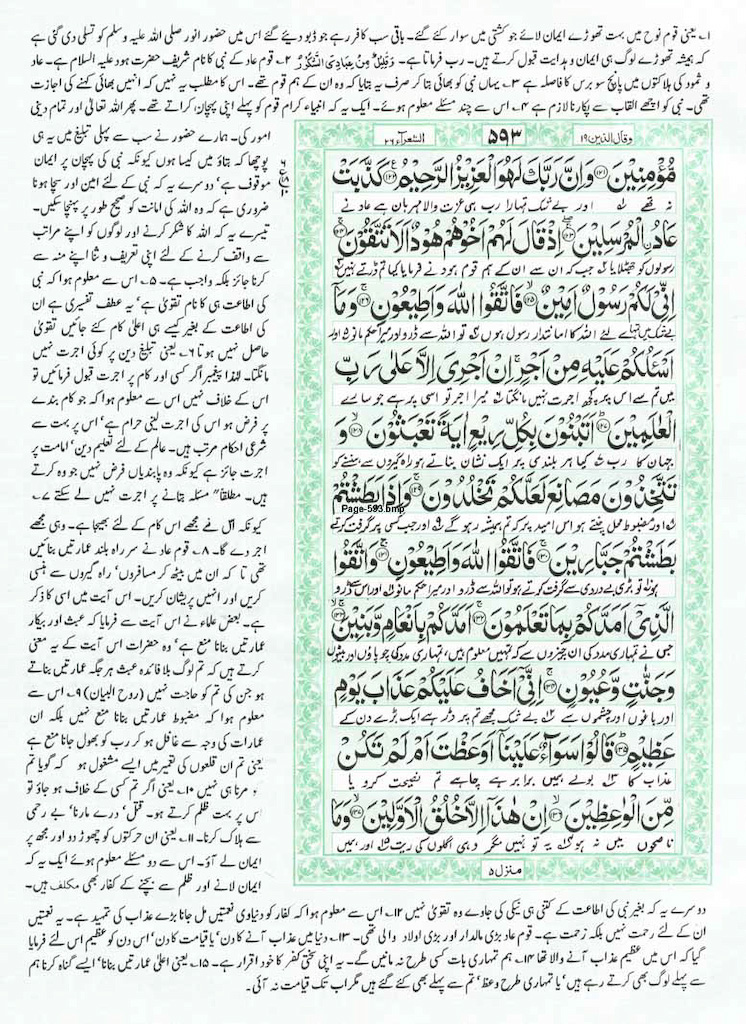 ۱۔ یعنی قوم نوح میں بہت تھوڑے ایمان لائے جو کشتی میں سوار کئے گئے۔ باقی سب کافر رہے جو ڈبو دیئے گئے اس میں حضور انور صلی اللہ علیہ وسلم کو تسلی دی گئی ہے
کہ ہمیشہ تھوڑے لوگ ہی ایمان و ہدایت قبول کرتے ہیں۔ رب فرماتا ہے۔ وَقَلِیْلٌ مِّنْ عِبَادِیَ الشَّکُوْرُ ۲۔ قوم عاد کے نبی کا نام شریف حضرت ہود علیہ السلام ہے۔ عاد
و ثمود کی ہلاکتوں میں پانچ سو برس کا فاصلہ ہے ۳۔ یہاں نبی کو بھائی بتا کر صرف یہ بتایا کہ وہ ان کے ہم قوم تھے۔ اس کا مطلب یہ نہیں کہ انہیں بھائی کہنے کی اجازت
تھی۔ نبی کو اچھے القاب سے پکارنا لازم ہے ۴۔ اس سے چند مسئلے معلوم ہوئے۔ ایک یہ کہ انبیاء کرام قوم کو پہلے اپنی پہچان کراتے تھے۔ پھر اللہ تعالیٰ اور تمام دینی
وقال الذین ۱۹ ۵۹۳ الشعرآء ۲۶
مُّؤْمِنِيْنَ وَاِنَّ رَبَّكَ لَهُوَ الْعَزِيْزُ الرَّحِيْمُ كَذَّبَتْ
نہ تھے اور بے شک تمہارا رب ہی عزت والا مہربان ہے عاد نے
عَادُ ِۨالْمُرْسَلِيْنَ اِذْ قَالَ لَهُمْ اَخُوْهُمْ هُوْدٌ اَلَا تَتَّقُوْنَ
رسولوں کو جھٹلایا جب کہ ان سے ان کے ہم قوم ہود نے فرمایا کیا تم ڈرتے نہیں
اِنِّيْ لَكُمْ رَسُوْلٌ اَمِيْنٌ فَاتَّقُوا اللّٰهَ وَاَطِيْعُوْنِ وَمَآ
بے شک میں تمہارے لئے اللہ کا امانتدار رسول ہوں تو اللہ سے ڈرو اور میرا حکم مانو اور
اَسْئَلُكُمْ عَلَيْهِ مِنْ اَجْرٍ اِنْ اَجْرِيَ اِلَّا عَلٰى رَبِّ
میں تم سے اس پر کچھ اجرت نہیں مانگتا میرا اجر تو اسی پر ہے جو سارے
الْعٰلَمِيْنَ اَتَبْنُوْنَ بِكُلِّ رِيْعٍ اٰيَةً تَعْبَثُوْنَ وَ
جہان کا رب کیا ہر بلندی پر ایک نشان بناتے ہو راہ گیروں سے ہنسنے کو
تَتَّخِذُوْنَ مَصَانِعَ لَعَلَّكُمْ تَخْلُدُوْنَ وَاِذَا بَطَشْتُمْ
Page-593.bmp
اور مضبوط محل چنتے ہو اس امید پر کہ تم ہمیشہ رہو گے اور جب کسی پر گرفت کرتے
بَطَشْتُمْ جَبَّارِيْنَ فَاتَّقُوا اللّٰهَ وَاَطِيْعُوْنِ وَاتَّقُوا
ہو تو بڑی بے دردی سے گرفت کرتے ہو تو اللہ سے ڈرو اور میرا حکم مانو اور اس سے ڈرو
الَّذِيْٓ اَمَدَّكُمْ بِمَا تَعْلَمُوْنَ اَمَدَّكُمْ بِاَنْعَامٍ وَّبَنِيْنَ
جس نے تمہاری مدد کی ان چیزوں سے کہ تمہیں معلوم ہیں، تمہاری مدد کی چوپاؤں اور بیٹوں
وَجَنّٰتٍ وَّعُيُوْنٍ اِنِّيْٓ اَخَافُ عَلَيْكُمْ عَذَابَ يَوْمٍ
اور باغوں اور چشموں سے بے شک مجھے تم پر ڈر ہے ایک بڑے دن کے
عَظِيْمٍ قَالُوْا سَوَآءٌ عَلَيْنَآ اَوَعَظْتَ اَمْ لَمْ تَكُنْ
عذاب کا بولے ہمیں برابر ہے چاہے تم نصیحت کرو یا
مِّنَ الْوٰعِظِيْنَ اِنْ هٰذَآ اِلَّا خُلُقُ الْاَوَّلِيْنَ وَمَا
ناصحوں میں نہ ہو یہ تو نہیں مگر وہی اگلوں کی ریت اور ہمیں
منزل ۵
امور کی۔ ہمارے حضور نے سب سے پہلی تبلیغ میں یہ ہی
پوچھا کہ بتاؤ میں کیسا ہوں کیونکہ نبی کی پہچان پر ایمان
موقوف ہے، دوسرے یہ کہ نبی کے لئے امین اور سچا ہونا
ضروری ہے کہ وہ اللہ کی امانت کو صحیح طور پر پہنچا سکیں۔
تیسرے یہ کہ اللہ کا شکر کرنے اور لوگوں کو اپنے مراتب
سے واقف کرنے کے لئے اپنی تعریف و ثنا اپنے منہ سے
کرنا جائز بلکہ واجب ہے۔ ۵۔ اس سے معلوم ہوا کہ نبی
کی اطاعت ہی کا نام تقویٰ ہے، یہ عطف تفسیری ہے ان
کی اطاعت کے بغیر کیسے ہی اعلیٰ کام کئے جائیں تقویٰ
حاصل نہیں ہوتا ۶۔ یعنی تبلیغ دین پر کوئی اجرت نہیں
مانگتا۔ لہٰذا پیغمبر اگر کسی اور کام پر اجرت قبول فرمائیں تو
اس کے خلاف نہیں اس سے معلوم ہوا کہ جو کام بندے
پر فرض ہو اس کی اجرت لینی حرام ہے، اس پر بہت سے
شرعی احکام مرتب ہیں۔ عالم کے لئے تعلیم دین، امامت پر
اجرت جائز ہے کیونکہ وہ پابندیاں فرض نہیں جو وہ کرتے
ہیں۔ مطلقاً مسئلہ بتانے پر اجرت نہیں لے سکتے ۷۔
کیونکہ اس نے مجھے اس کام کے لئے بھیجا ہے۔ وہی مجھے
اجر دے گا۔ ۸۔ قوم عاد نے سر راہ بلند عمارتیں بنائیں
تھی تا کہ ان میں بیٹھ کر مسافروں، راہ گیروں سے ہنسی
کریں اور انہیں پریشان کریں۔ اس آیت میں اسی کا ذکر
ہے۔ بعض علماء نے اس آیت سے فرمایا کہ عبث اور بیکار
عمارتیں بنانا منع ہے، وہ حضرات اس آیت کے یہ معنی
کرتے ہیں کہ تم لوگ بلا فائدہ عبث ہر جگہ عمارتیں بناتے
ہو جن کی تم کو حاجت نہیں (روح البیان) ۹۔ اس سے
معلوم ہوا کہ مضبوط عمارتیں بنانا منع نہیں بلکہ ان
عمارات کی وجہ سے غافل ہو کر رب کو بھول جانا منع ہے
یعنی تم ان قلعوں کی تعمیر میں ایسے مشغول ہو کہ گویا تم
کو مرنا ہی نہیں ۱۰۔ یعنی اگر تم کسی کے خلاف ہو جاؤ تو
اس پر بہت ظلم کرتے ہو۔ قتل، درے مارنا، بے رحمی
سے ہلاک کرنا۔ ۱۱۔ یعنی ان حرکتوں کو چھوڑ دو اور مجھ پر
ایمان لے آؤ۔ اس سے دو مسئلے معلوم ہوئے ایک یہ کہ
ایمان لانے اور ظلم سے بچنے کے کفار بھی مکلف ہیں۔
دوسرے یہ کہ بغیر نبی کی اطاعت کے کتنی ہی نیکی کی جاوے وہ تقویٰ نہیں ۱۲۔ اس سے معلوم ہوا کہ کفار کو دنیاوی نعمتیں مل جانا بڑے عذاب کی تمہید ہے۔ یہ نعمتیں
ان کے لئے رحمت نہیں بلکہ زحمت ہے۔ قوم عاد بڑی مالدار اور بڑی اولاد والی تھی۔ ۱۳۔ دنیا میں عذاب آنے کا دن، یا قیامت کا دن، اس دن کو عظیم اس لئے فرمایا
گیا کہ اس میں عظیم عذاب آنے والا تھا ۱۴۔ ہم تمہاری بات کسی طرح نہ مانیں گے۔ یہ اپنی سختی کفر کا خود اقرار ہے۔ ۱۵۔ یعنی اعلیٰ عمارتیں بنانا، ایسے گناہ کرنا ہم
سے پہلے لوگ بھی کرتے رہے ہیں، یا تمہاری طرح وعظ، تم سے پہلے بھی کئے گئے ہیں مگر اب تک قیامت نہ آئی۔